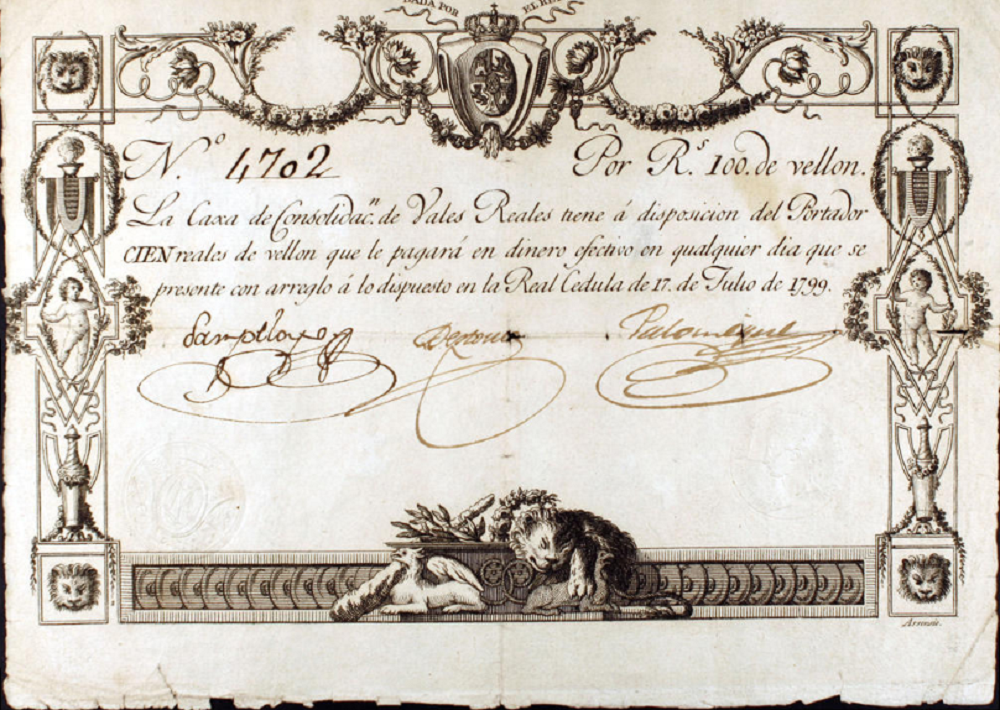 DADA POR EL RE
N.º 4702 Por R.s 100. de vellon.
La Caxa de Consolidac.n de Vales Reales tiene á disposicion del Portador
CIEN reales de vellon que le pagará en dinero efectivo en qualquier dia que se
presente con arreglo á lo dispuesto en la Real Cedula de 17. de Julio de 1799.